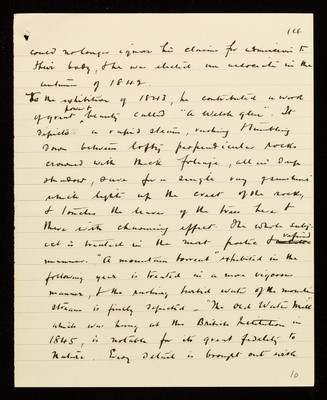 14
could no longer ignore his claims for admission to
their body, & he was elected an associate in the
autumn of 1842.
To the exhibition of 1843, he contributed a work
of great power & beauty called "A Welsh glen". It
depicts a rapid stream, rushing & tumbling
down between lofty perpendicular rocks
crowned with thick foliage, all in deep
shadow, save for a single ray of sunlight
which lights up the crest of the rocks,
& touches the leaves of the trees here &
there with charming effect. The whole subj-
ect is treated in the most poetic & refined
manner. "A mountain torrent" exhibited in the
following year is treated in a more vigorous
manner, & the rushing turbid water of the mountain
stream is finely depicted – "The Old Water Mill"
which was hung at the British Institution in
1845, is notable for its great fidelity to
Nature. Every detail is brought out with
10